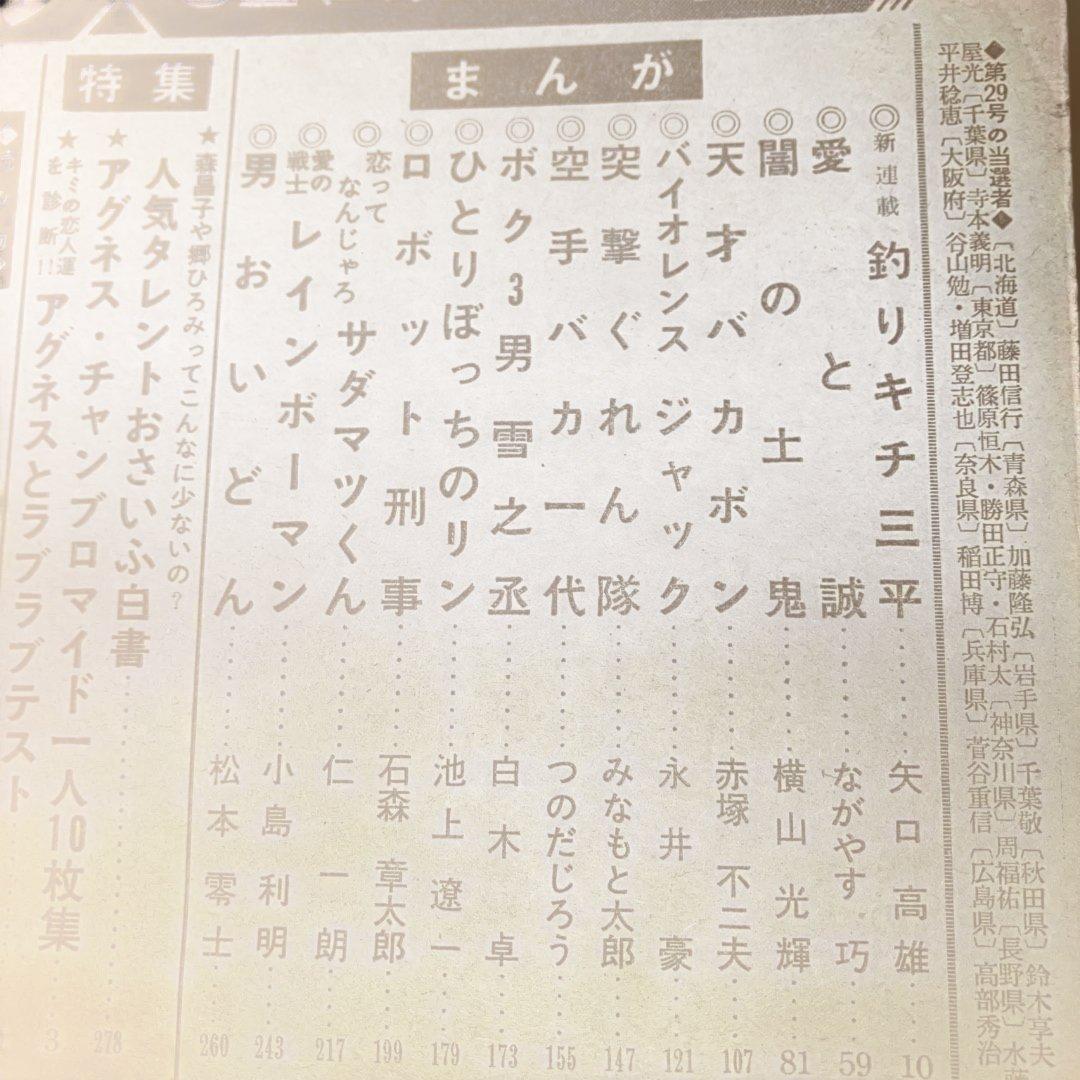 ◆第29号の当選者◆〔北海道〕藤田信行〔青森県〕加藤隆弘〔岩手県〕千葉敬〔秋田県〕鈴木享夫
屋光〔千葉県〕寺本義明〔東京都〕篠原恒木・勝田正守・石村太〔神奈川県〕周福祐〔長野県〕水藤
平井稔恵〔大阪府〕谷山勉・増田登志也〔奈良県〕稲田博〔兵庫県〕菅谷重信〔広島県〕高部秀治
まんが
◎新連載 釣りキチ三平 矢口高雄 10
◎愛と誠 ながやす巧 59
◎闇の土鬼 横山光輝 81
◎天才バカボン 赤塚不二夫 107
◎バイオレンスジャック 永井豪 121
◎突撃ぐれん隊 みなもと太郎 147
◎空手バカ一代 つのだじろう 155
◎ボク3男雪之丞 白木卓 173
◎ひとりぼっちのリン 池上遼一 179
◎ロボット刑事 石森章太郎 199
◎恋ってなんじゃろ サダマツくん 仁一朗 217
◎愛の戦士 レインボーマン 小島利明 243
◎男おいどん 松本零士 260
特集
★森昌子や郷ひろみってこんなに少ないの?
人気タレントおさいふ白書 278
★アグネス・チャンブロマイド一人10枚集 3
★キミの恋人運を診断!! アグネスとラブラブテスト